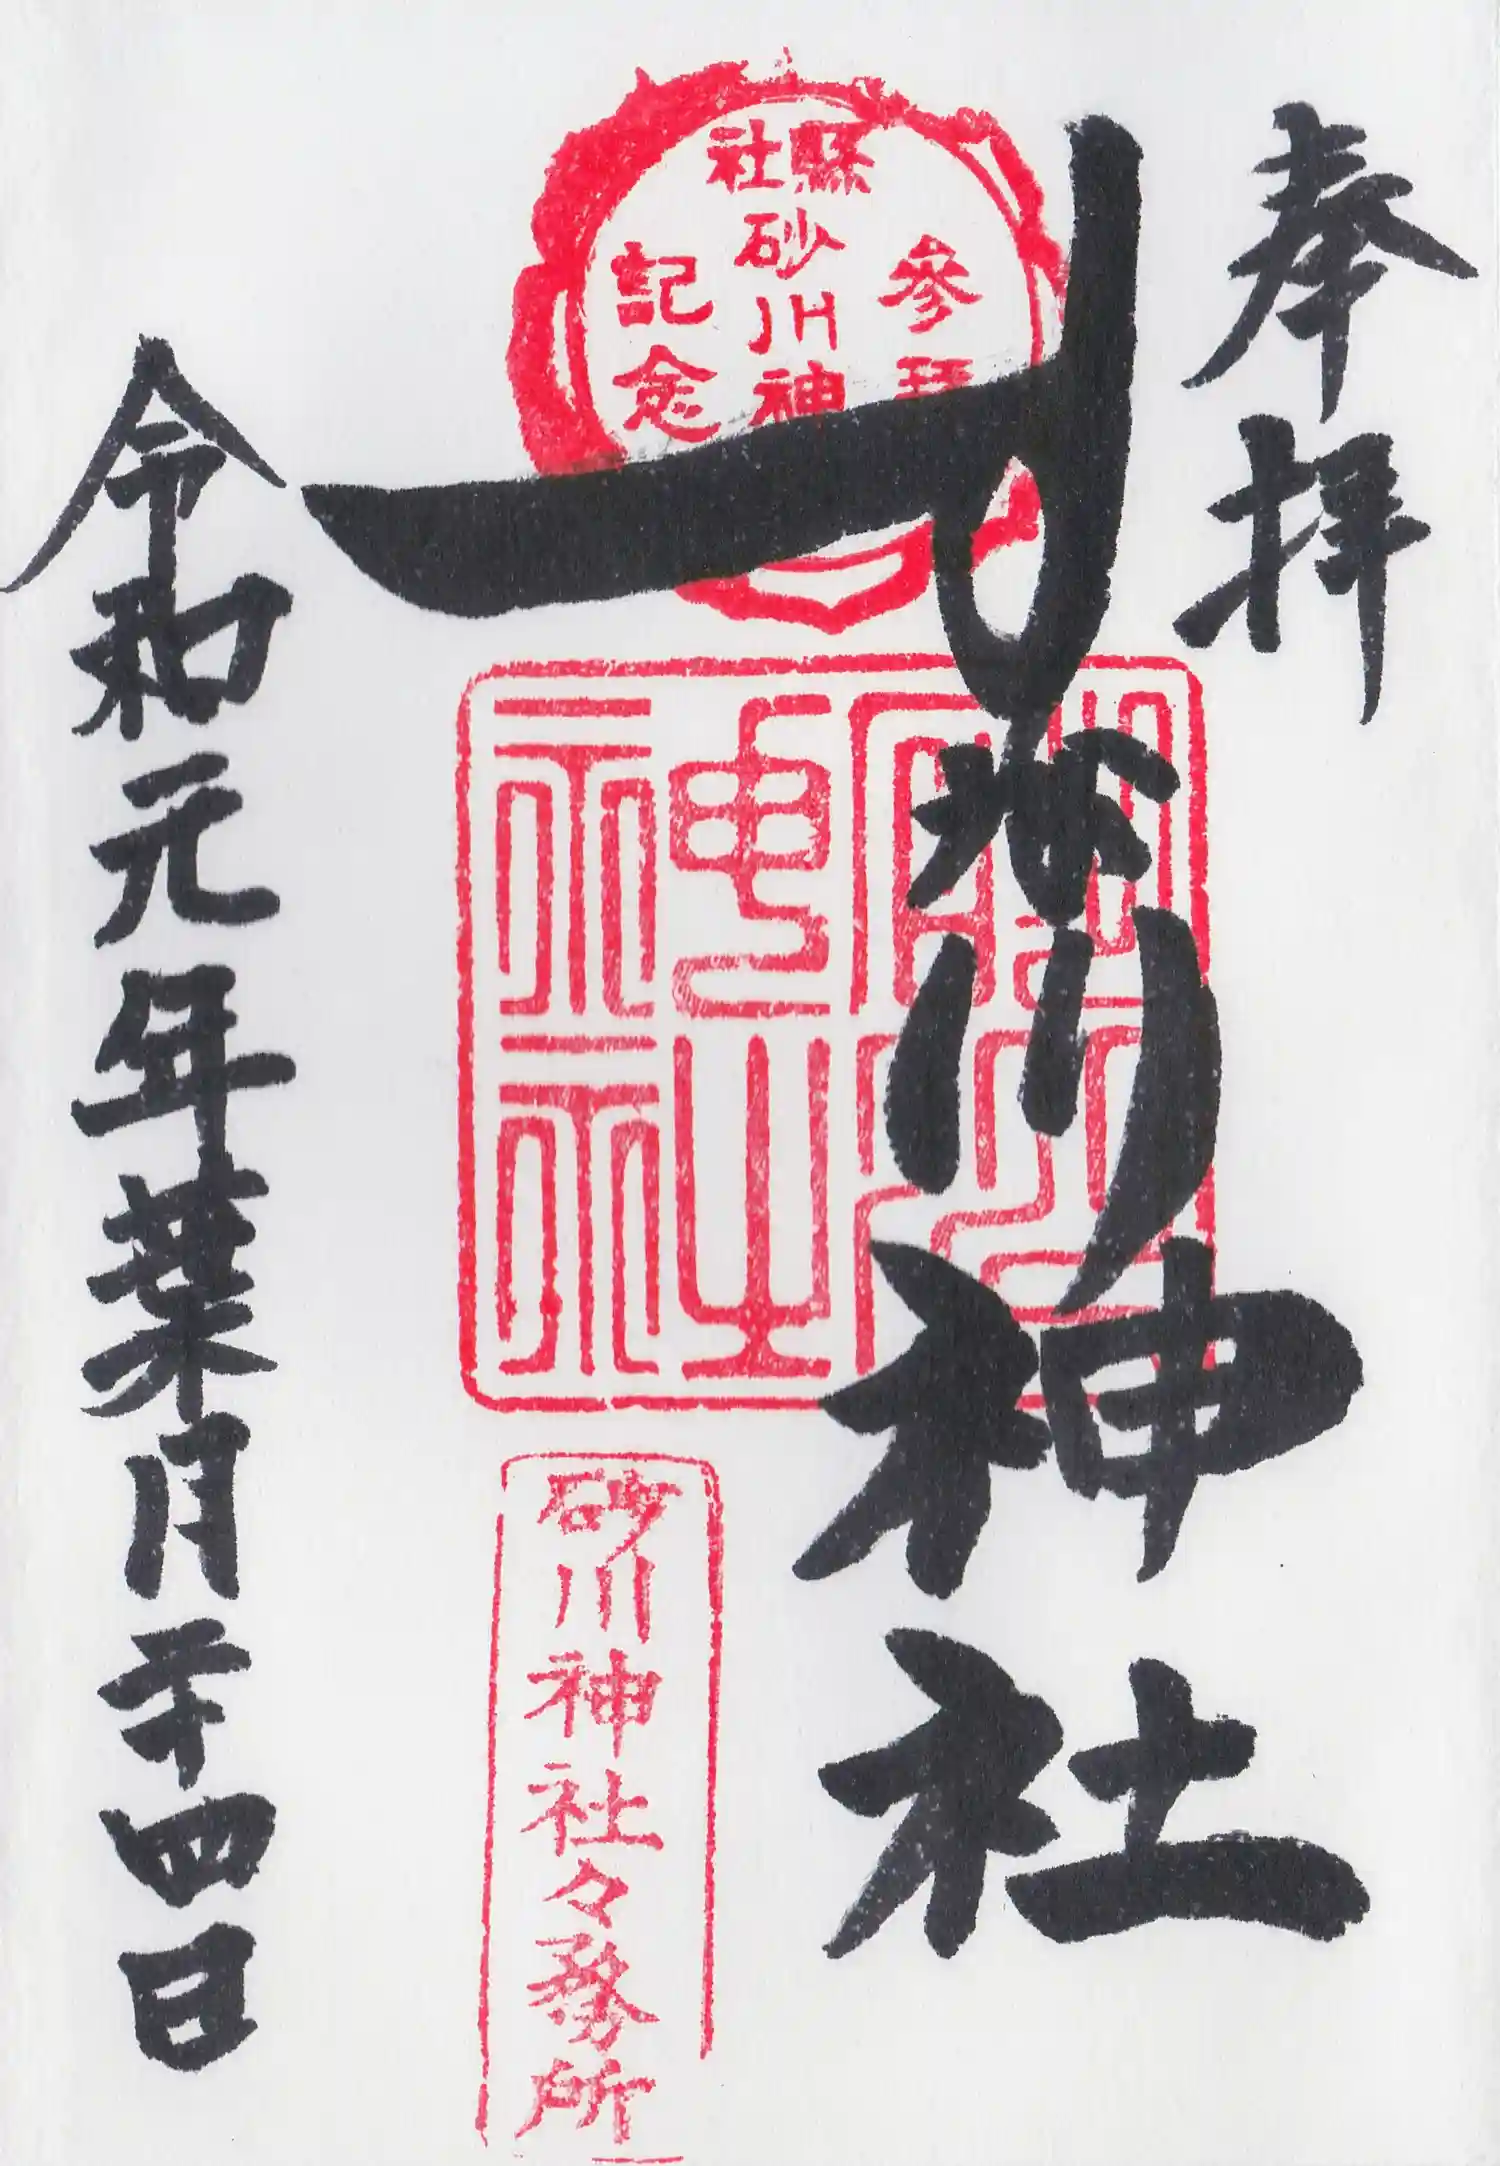 奉拝
すな川神社
縣社
參拜
砂川神
記念
神社
砂川神社々務所
令和元年葉月二十四日